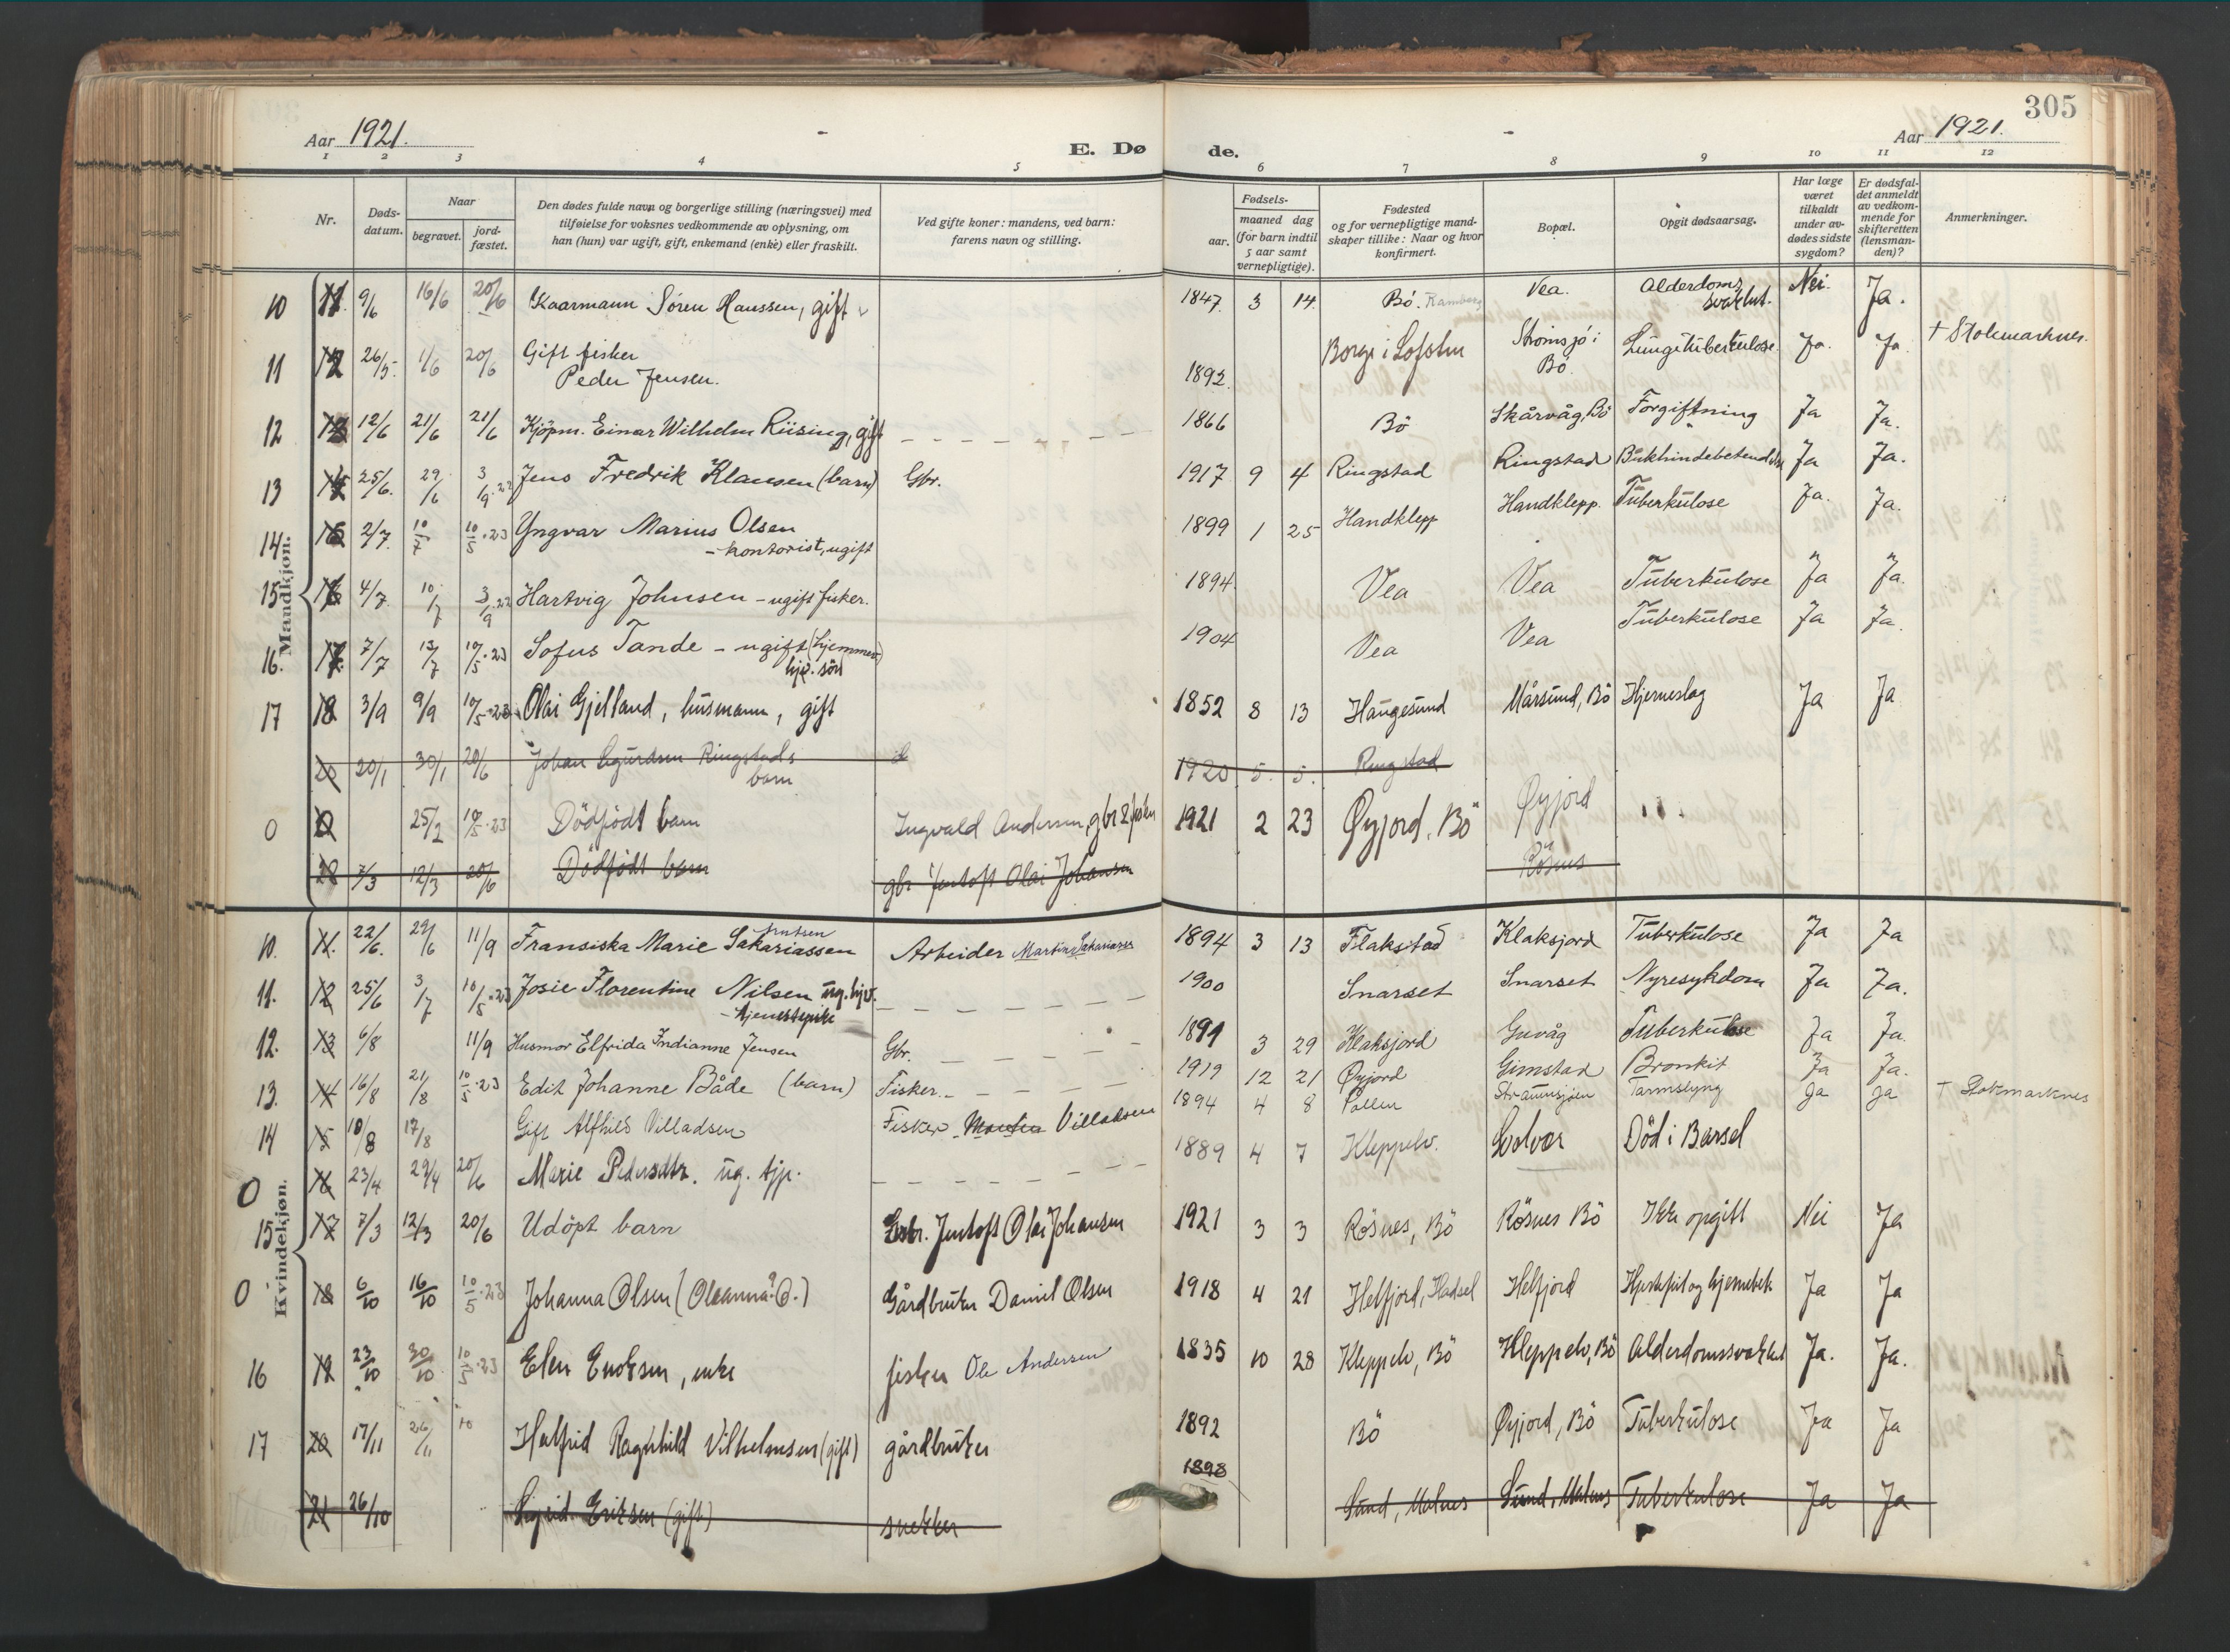 305
Aar 1921.
E. Dø
de.
Aar 1921.
1 2 3 4 5 6 7 8 9 10 11 12
Nr.
Døds-
datum.
Naar
begravet.
jord-
fæstet.
Den dødes fulde navn og borgerlige stilling (næringsvei) med
tilføielse for voksnes vedkommende av oplysning, om
han (hun) var ugift, gift, enkemand (enke) eller fraskilt.
Ved gifte koner: mandens, ved barn:
farens navn og stilling.
Fødsels-
aar.
maaned dag
(for barn indtil
5 aar samt
vernepligtige).
Fødested
og for vernepligtige mand-
skaper tillike: Naar og hvor
konfirmert.
Bopæl.
Opgit dødsaarsag.
Har læge
været
tilkaldt
under av-
dødes sidste
sygdom?
Er dødsfal-
det anmeldt
av vedkom-
mende for
skifteretten
(lensman-
den)?
Anmerkninger.
Mandkjøn.
10 11 9/6 16/6 20/6 Kaarmann Søren Hanssen, gift 1847 3 14 Bö. Ramberg Vea. Alderdoms svakhet. Nei. Ja.
11 12 26/5 1/6 20/6 Gift fisker
Peder Jensen. 1892. Borge i Lofoten Strömsjö i Bö. Lungetuberkulose Ja. Ja. † Stokmarknes.
12 13 12/6 21/6 21/6 Kjöpm. Einar Wilhelm Riising, gift 1866 Bö Skårvåg, Bö Forgiftning Ja Ja.
13 14 25/6. 29/6 3/9.23 Jens Fredrik Klausen (barn) Gbr. 1917 9 4 Ringstad Ringstad Bukhindebetendelse Ja Ja.
14. 15 2/7. 10/7 10/5.23 Yngvar Marius Olsen
- kontorist, ugift 1899 1 25 Handklepp Handklepp. Tuberkulose Ja. Ja.
15 16 4/7 10/7 3/9.23 Hartvig Johnsen - ugift fisker. 1894. Vea Vea Tuberkulose Ja Ja.
16. 17 7/7 13/7 10/5.23 Sofus Tande - ugift (hjemmev)
hjv. sön 1904 Vea Vea Tuberkulose Ja Ja.
17 18 3/9 9/9 10/5.23 Olai Gjelland, husmann, gift 1852 8 13 Haugesund Mårsund, Bö Hjerneslag Ja Ja
20 20/1 30/1 20/6 Johan Sigurdsen Ringstads
barn 1920 5. 5. Ringstad
0 25/2 10/5.23 Dödfödt barn Ingvald Andersen, gbr 1921 2 23 Øyjord, Bö Øyjord
20 7/3 12/3 20/6 Dödfödt barn gbr Jentoft Olai Johansen Rösnes
Kvindekjøn.
10. 11. 22/6. 29/6 11/9 Fransiska Marie Sakariassen Arbeider Martin Sakariassen 1894 3 13 Flakstad Klaksjord Tuberkulose Ja Ja
11. 12 25/6 3/7 10/5.23 Josie Florentine Nilsen ug. hjv.
- tjenestepike 1900 Snarset Snarset Nyresykdom Ja Ja.
12. 13 6/8 11/9 Husmor Elfrida Indianne Jensen Gbr. 1891 3 29 Klaksjord Guvåg Tuberkulose Ja Ja.
13. 14 16/8 21/8 10/5.23 Edit Johanne Både (barn) Fisker. 1919 12 21 Øyjord Gimstad Bronkit Ja Ja.
14 15 10/8 17/8 Gift Alfhild Villadsen Fisker Martin Villadsen 1894 4 8 Pollen Straumsjøen Tarmslyng Ja Ja † Stokmarknes
0 16 23/4 29/4 20/6 Marie Pedersdtr. ug. tjp. 1889 4 7 Kleppelv. Svolvær Död i Barsel
15 17 7/3 12/3 20/6 Udöpt barn Gbr. Jentoft Olai Johansen 1921 3 3 Rösnes, Bö Rösnes Bö Ikke opgitt Nei Ja
0 18 6/10 16/10 10/5.23 Johanna Olsen (Oleanna? O.) Gårdbruker Daniel Olsen 1918 4 21 Helfjord, Hadsel Helfjord Ja Ja
16 19 23/10 30/10 10/5.23 Elen Enoksen, enke fisker Ole Andersen 1835 10 28 Kleppelv, Bö Kleppelv, Bö Alderdomssvakhet Ja. Ja.
17 20 17/11 26/11 10 Halfrid Ragnhild Vilhelmsen (gift) gårdbruker 1892 Bö Øyjord, Bö Tuberkulose Ja Ja
21 26/10 Sigrid Eriksen (gift) snekker 1898 Sund, Malnes Sund, Malnes Tuberkulose Ja Ja